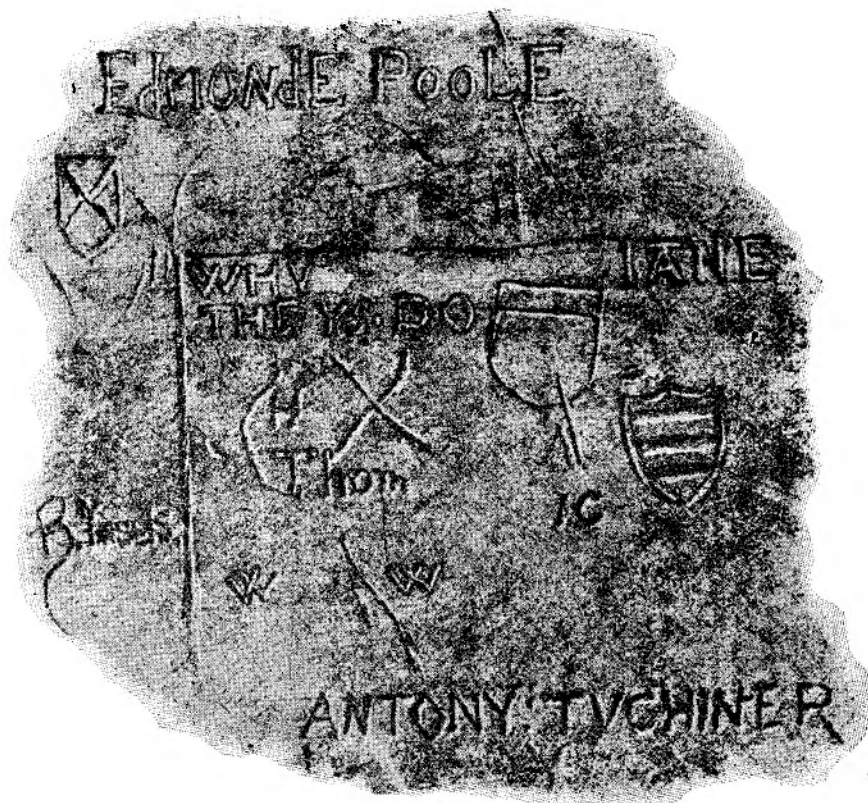 EdMONdE POOLE
IANE
WHY
THEY DO
H
Thom
I C
W W
ANTONY TVCHINER